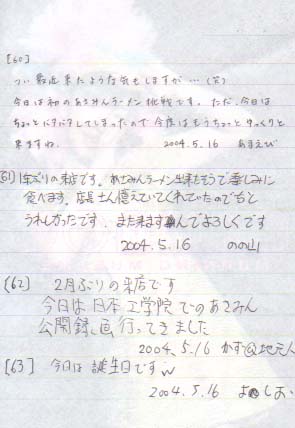 [60]
つい最近来たような気もしますが…(笑)
今日は初のあさみんラーメン挑戦です。ただ、今日は
ちょっとバタバタしてしまったので今度はもうちょっとゆっくりと
来ますね。 2004.5.16 あまえび
(61) 1年ぶりの来店です。あさみんラーメン出来そうで楽しみに
食べます。店長さん憶えていてくれていたのでちと
うれしかったです。また来ますんでよろしくです
2004.5.16 ののい
(62) 2月ぶりの来店です
今日は日本工学院でのあさみん
公開録画行ってきました
2004.5.16 かず@地元人
[63] 今日は誕生日ですw
2004.5.16 よしお